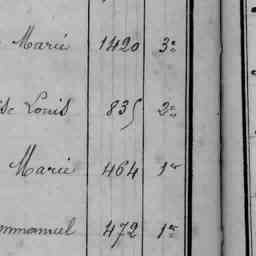 Marie 1420 3e
se Louis 835 2e
Marie 464 1er
mmanuel 472 1er